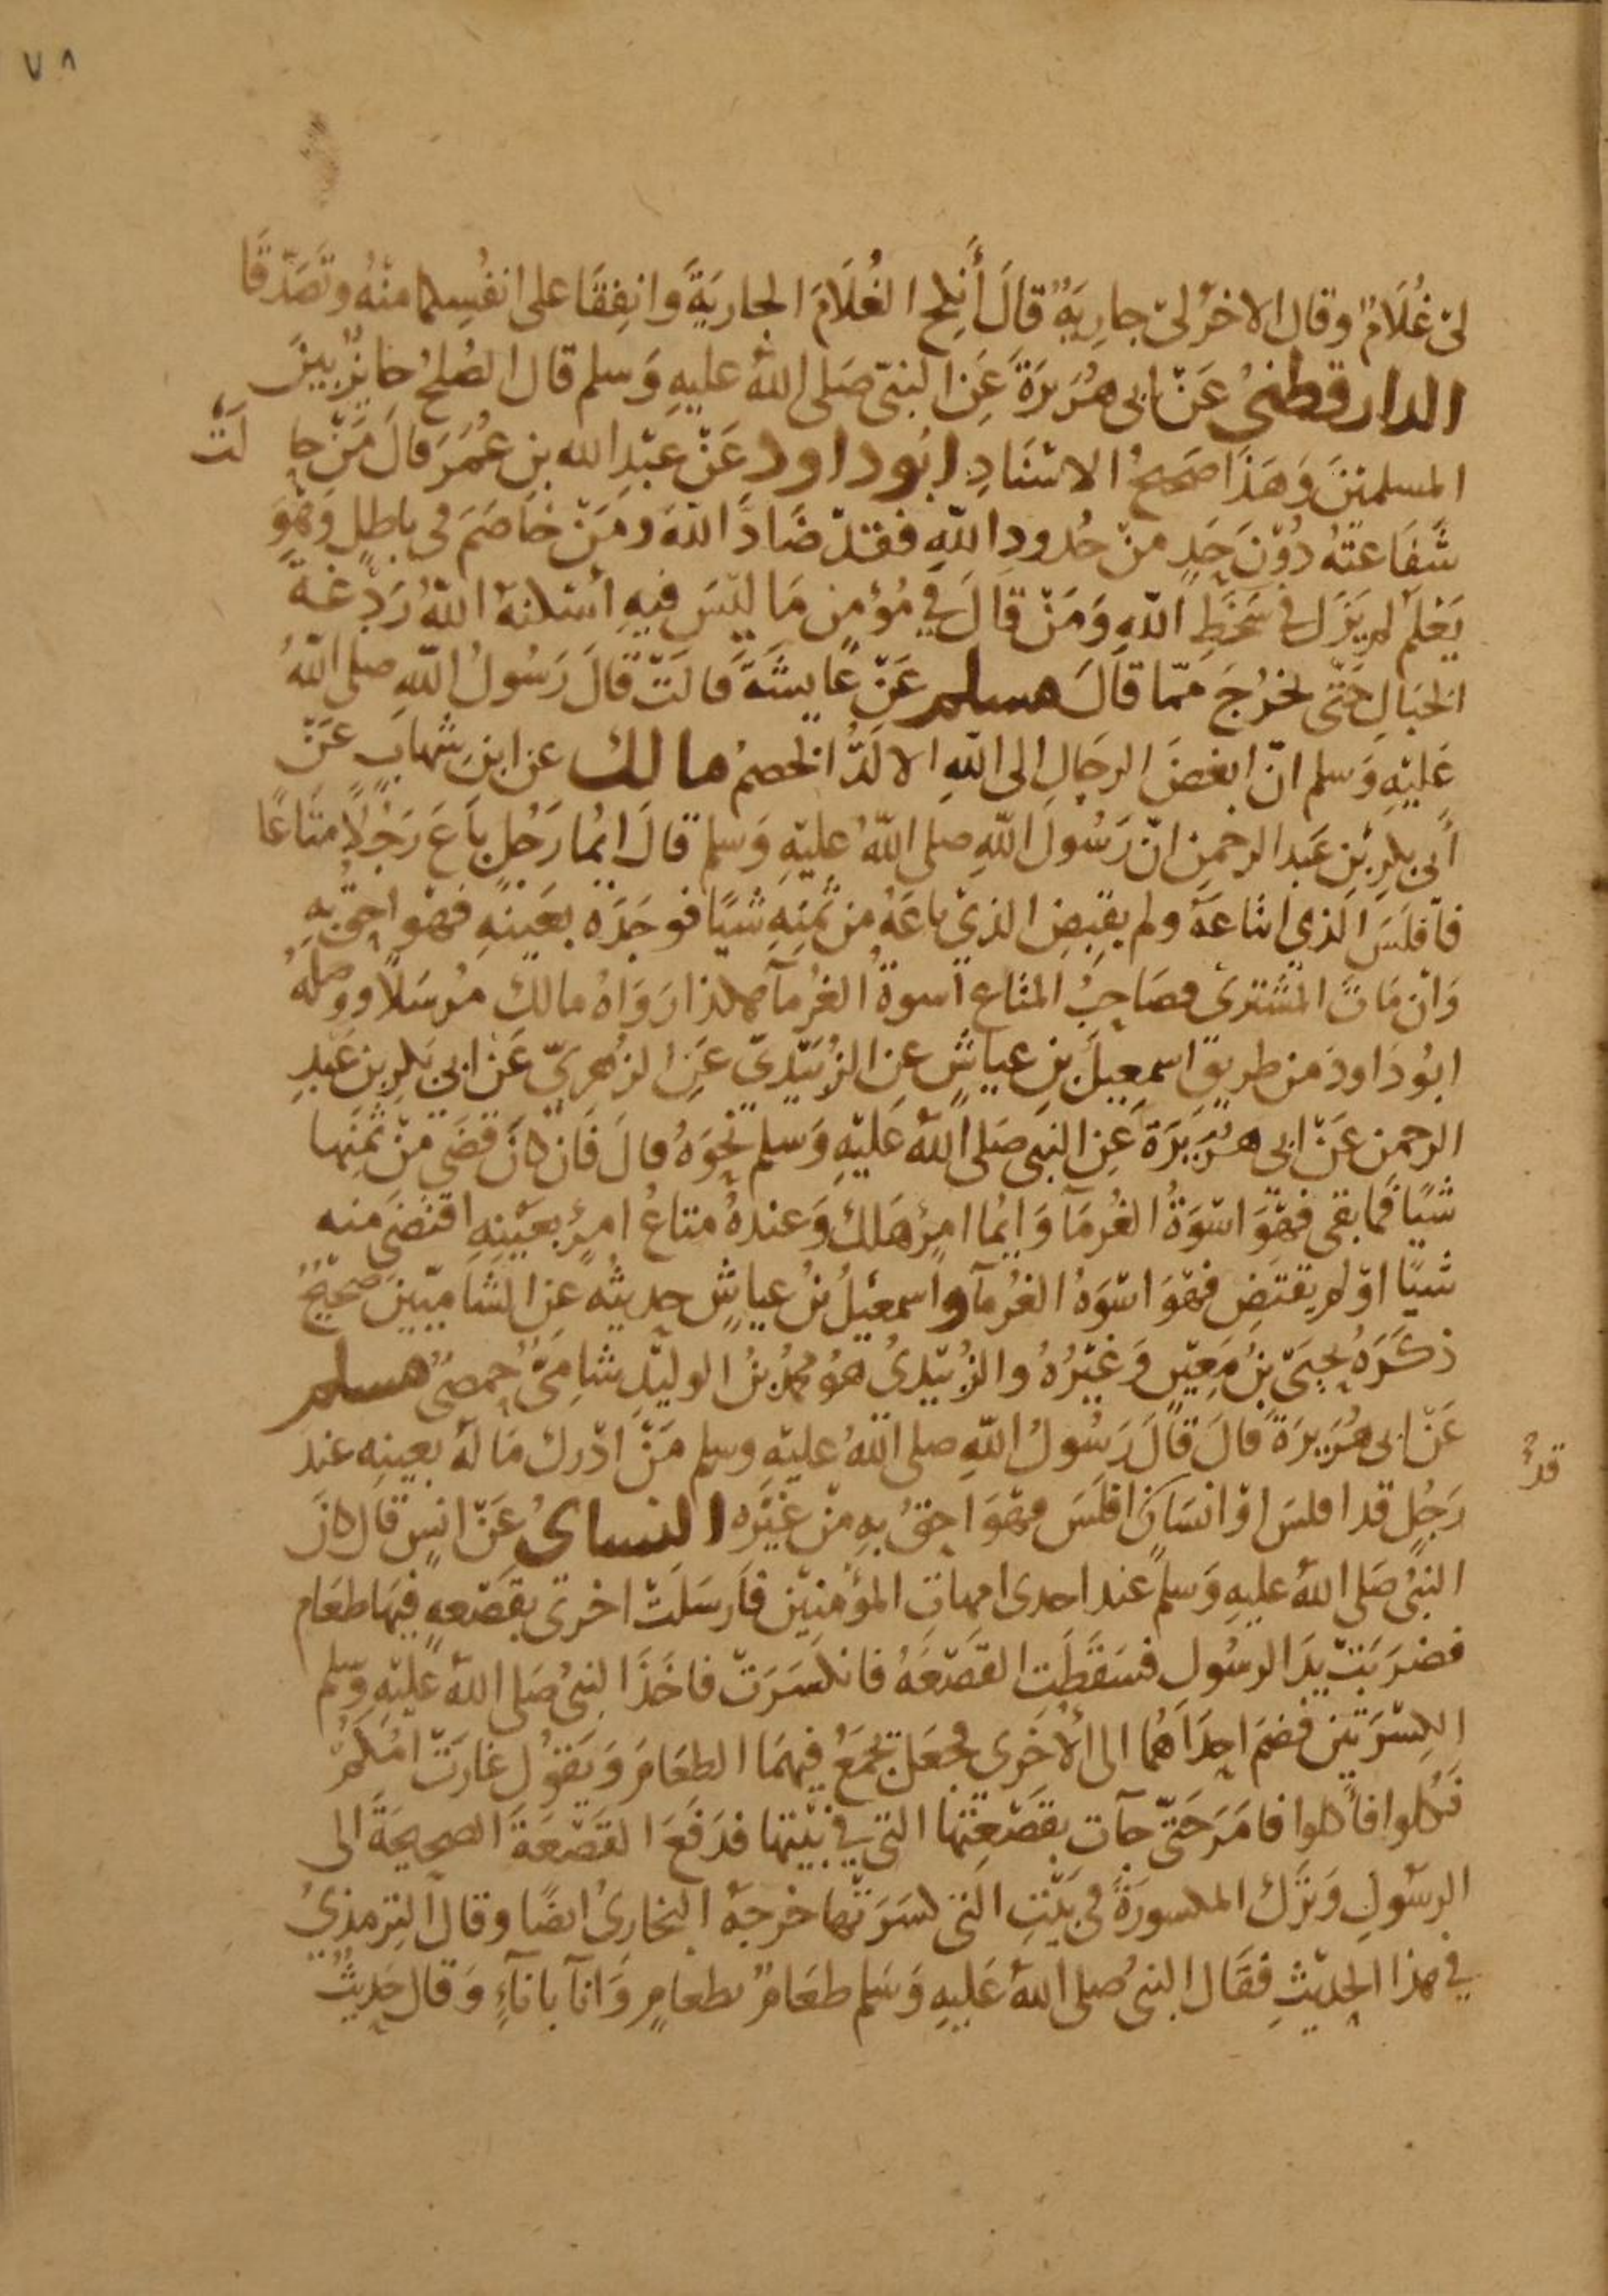 ٧٨
لىْ غُلَامٌ وقال الاخرُ لىْ جارِيَةٌ قالَ أَنْكِحِ الغُلَامَ الجارِيَةَ وانفِقَا على انفُسِهما منْهُ وتَصَدّقَا
الدارقطنىُ عَنْ ابى هُرَيرَةَ عَنِ النبىّ صَلى اللهُ عليهِ وَسلم قال الصُلحُ جايزٌ بينَ
المسلمينَ وَهَذا صَحيحُ الاسْنَادِ ابُو داود عَنْ عَبْدِ الله بنِ عُمَرَ قالَ مَنْ حا لَتْ
شَفَاعَتُهُ دُوْنَ حَدٍ منْ حُدودِ اللّهِ فقدْ ضَادَّ اللّهَ ومَنْ خاصَمَ فى باطِلٍ وَهُوَ
يَعْلم لم يَزَل فى سَخَطِ اللّهِ وَمَنْ قالَ فِي مُؤمنٍ مَا ليْسَ فيهِ أسْكنهُ اللّهُ رَدْغة
الخبَالِ حَتّى يخرُجَ ممّا قالَ مسلم عَنْ عَايشَةَ قالَتْ قالَ رَسُولُ اللّهِ صلى اللّهُ
عَليْهِ وَسلم انّ ابغضَ الرجَالِ الى اللّهِ الالَدُّ الخصمُ مالك عن ابنِ شهابٍ عَنْ
أبى بكرِ بْنِ عَبد الرحمنِ انّ رَسُولَ اللّهِ صلى اللّهُ عليْهِ وَسلم قالَ ايُما رَجُلٍ بَاعَ رَجُلًا متَاعًا
فأفلَسَ الذي ابتاعَهُ ولم يقبِضِ الذيْ باعَهُ من ثمنِهِ شيًا فوجَدَه بعَينهِ فهُو احقُ بهِ
وَان مَاتَ المشترى فصَاحِبُ المتاع اسوةُ الغرُمآ هكذا رَوَاهُ مالك مُرسَلًا ووصلَهُ
ابُو دَاودَ من طريق اسمعِيلَ بنِ عياشٍ عنِ الزُبَيْدِيّ عَنِ الزهرِيّ عَنْ ابى بَكرِ بن عَبْدِ
الرحمن عَنْ ابى هُرَيْرَةَ عَنِ النبِى صَلى اللّهُ عَليْهِ وَسلم نحْوَهُ قالَ فَان كانَ قَضَى مِنْ ثمَنِها
شيًا فما بقى فَهُوَ اسْوَةُ الغُرمَآ وَايُما امرُؤٍ هَلك وَعندهُ متاعُ امرِئٍ بعَيْنِهِ اقتضَى منه
شيًا اوْ لم يقتَضِ فهُوَ اسْوَهُ الغُرمآ واسمعيْلُ بنُ عياشٍ حديثُه عنِ الشامِيّينَ صَحيْحُ
ذكَرَه يحيَىْ بنُ مَعِيْنٍ وَغَيْرُهُ والزُبيْدِيُ هوُ محمدُ بنُ الوليْدِ شامِيُّ حمصىٌ مسلم
عَنْ ابى هُرَيرَةَ قالَ قالَ رَسُولُ اللّهِ صلى اللّهُ عليْهِ وسلم مَنْ ادْرك مَالَهُ بعينِه عند
قدْ
رَجُلٍ قد افلسَ اوْ انسَانٍ افلَسَ فهُوَ احقُ بهِ منْ غيْرِه النساىُ عَنْ انسٍ قال كانَ
النبىُ صَلى اللّهُ عليهِ وَسلم عند احدى امهاتِ المؤمنِيْن فارسَلَتْ اخرى بقَصْعهٍ فيهَا طعَام
فضرَبَتْ يدَ الرسُولِ فسَقَطَتِ القَصْعَهُ فانكسَرَتْ فاخَذَ النبىُ صَلى اللّهُ عليْهِ وسلم
الكِسْرَتيْن فضمَ احِدَاهُما الى الاُخرى فجعَل يجمَعُ فيهمَا الطعَامَ وَيَقُوْل غارَتْ امُكمُ
كُلوا فأكلوا فامَرَ حَتّى جآت بقَصْعتِها التي فى بيْتِها فدَفَعَ القَصْعَةَ الصحِيحَةَ الى
الرسُولِ وَترَك المكسورَةَ فى بَيْتِ التى كسَرَتْها خرجهُ البخارِىُ ايضًا وقال الترمذِيُ
فى هذا الحدِيْثِ فقَال النبىُ صلى اللّهُ عَليهِ وَسَلم طعَامٌ بطعامٍ وَانآ بانآءٍ وَقال حَديثُ